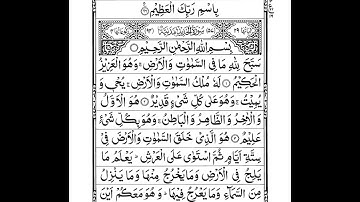 بِاسْمِ رَبِّكَ الْعَظِيْمِ
بِسْمِ اللّٰهِ الرَّحْمٰنِ الرَّحِيْمِ
سَبَّحَ لِلّٰهِ مَا فِى السَّمٰوٰتِ وَالْاَرْضِ ۚ وَهُوَ الْعَزِيْزُ
الْحَكِيْمُ ۝ لَهٗ مُلْكُ السَّمٰوٰتِ وَالْاَرْضِ ۚ يُحْىٖ وَ
يُمِيْتُ ۚ وَهُوَ عَلٰى كُلِّ شَىْءٍ قَدِيْرٌ ۝ هُوَ الْاَوَّلُ
وَالْاٰخِرُ وَالظَّاهِرُ وَالْبَاطِنُ ۚ وَهُوَ بِكُلِّ شَىْءٍ
عَلِيْمٌ ۝ هُوَ الَّذِىْ خَلَقَ السَّمٰوٰتِ وَالْاَرْضَ فِىْ
سِتَّةِ اَيَّامٍ ثُمَّ اسْتَوٰى عَلَى الْعَرْشِ ۚ يَعْلَمُ مَا
يَلِجُ فِى الْاَرْضِ وَمَا يَخْرُجُ مِنْهَا وَمَا يَنْزِلُ
مِنَ السَّمَآءِ وَمَا يَعْرُجُ فِيْهَا ۚ وَهُوَ مَعَكُمْ اَيْنَ